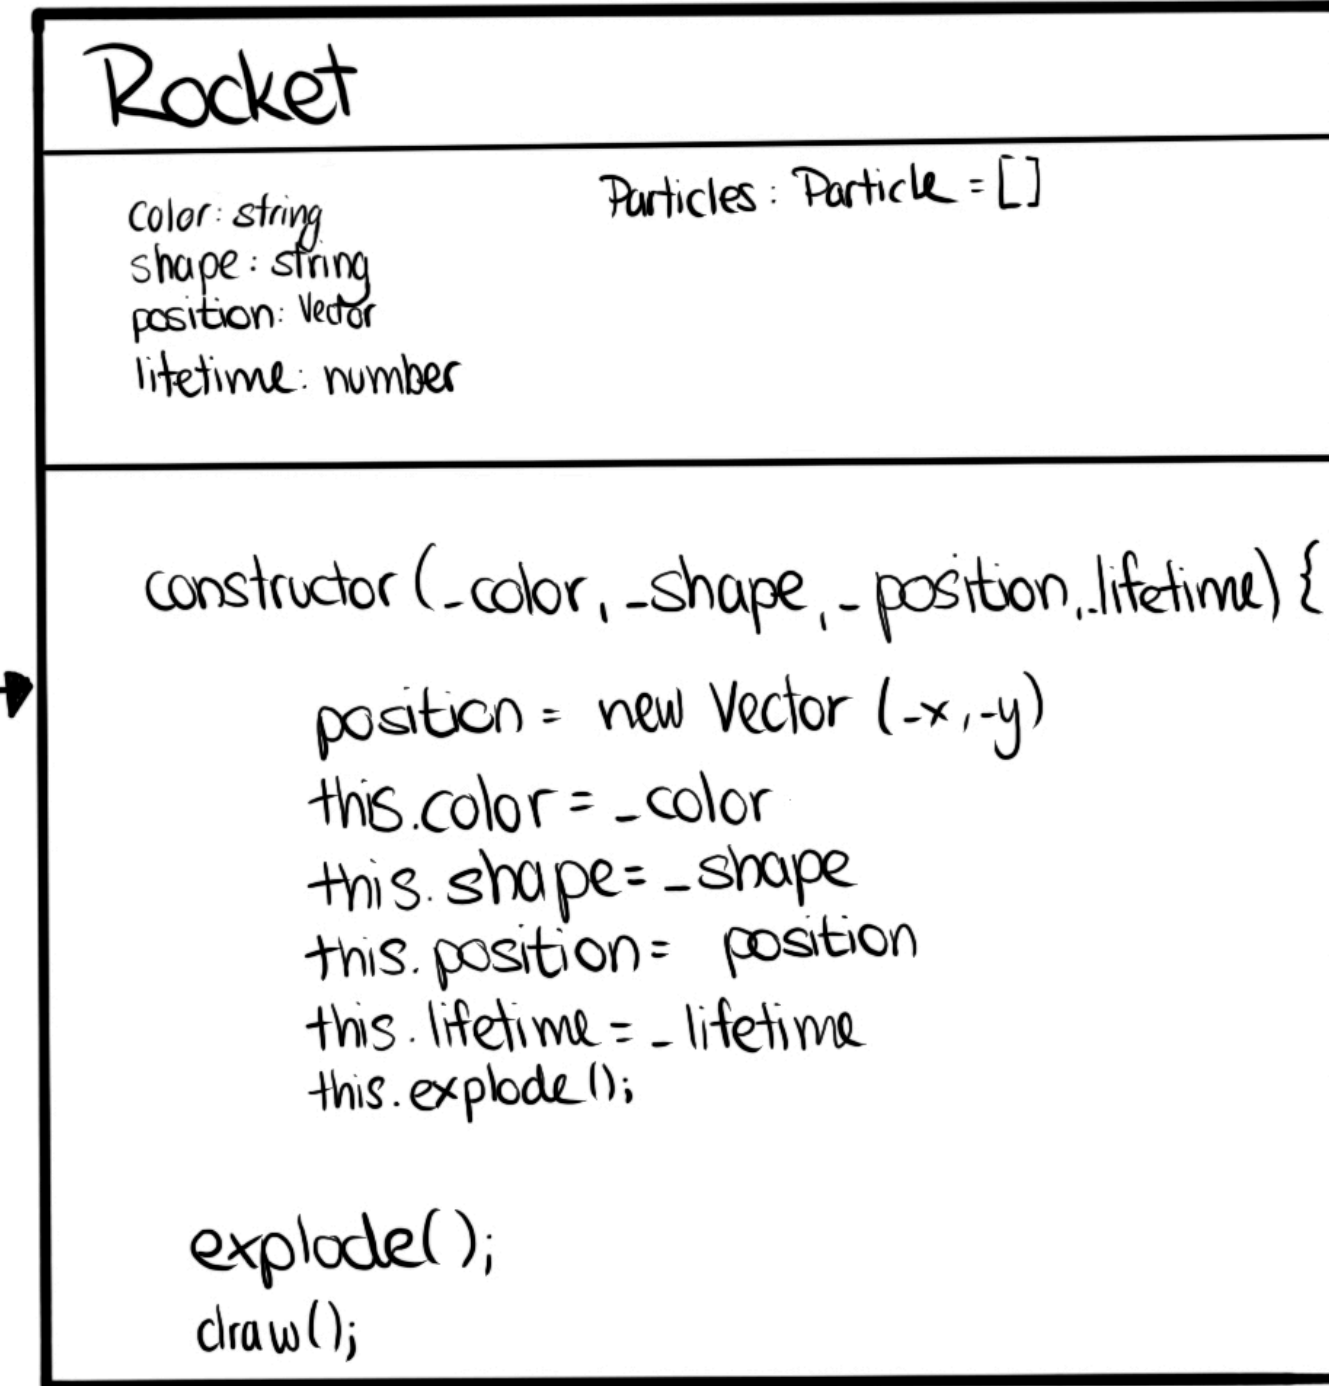 Rocket
color: string
shape: string
position: Vector
lifetime: number
Particles: Particle = []
constructor (_color, _shape, _position, _lifetime) {
position = new Vector (_x, _y)
this.color = _color
this.shape = _shape
this.position = position
this.lifetime = _lifetime
this.explode();
explode();
draw();